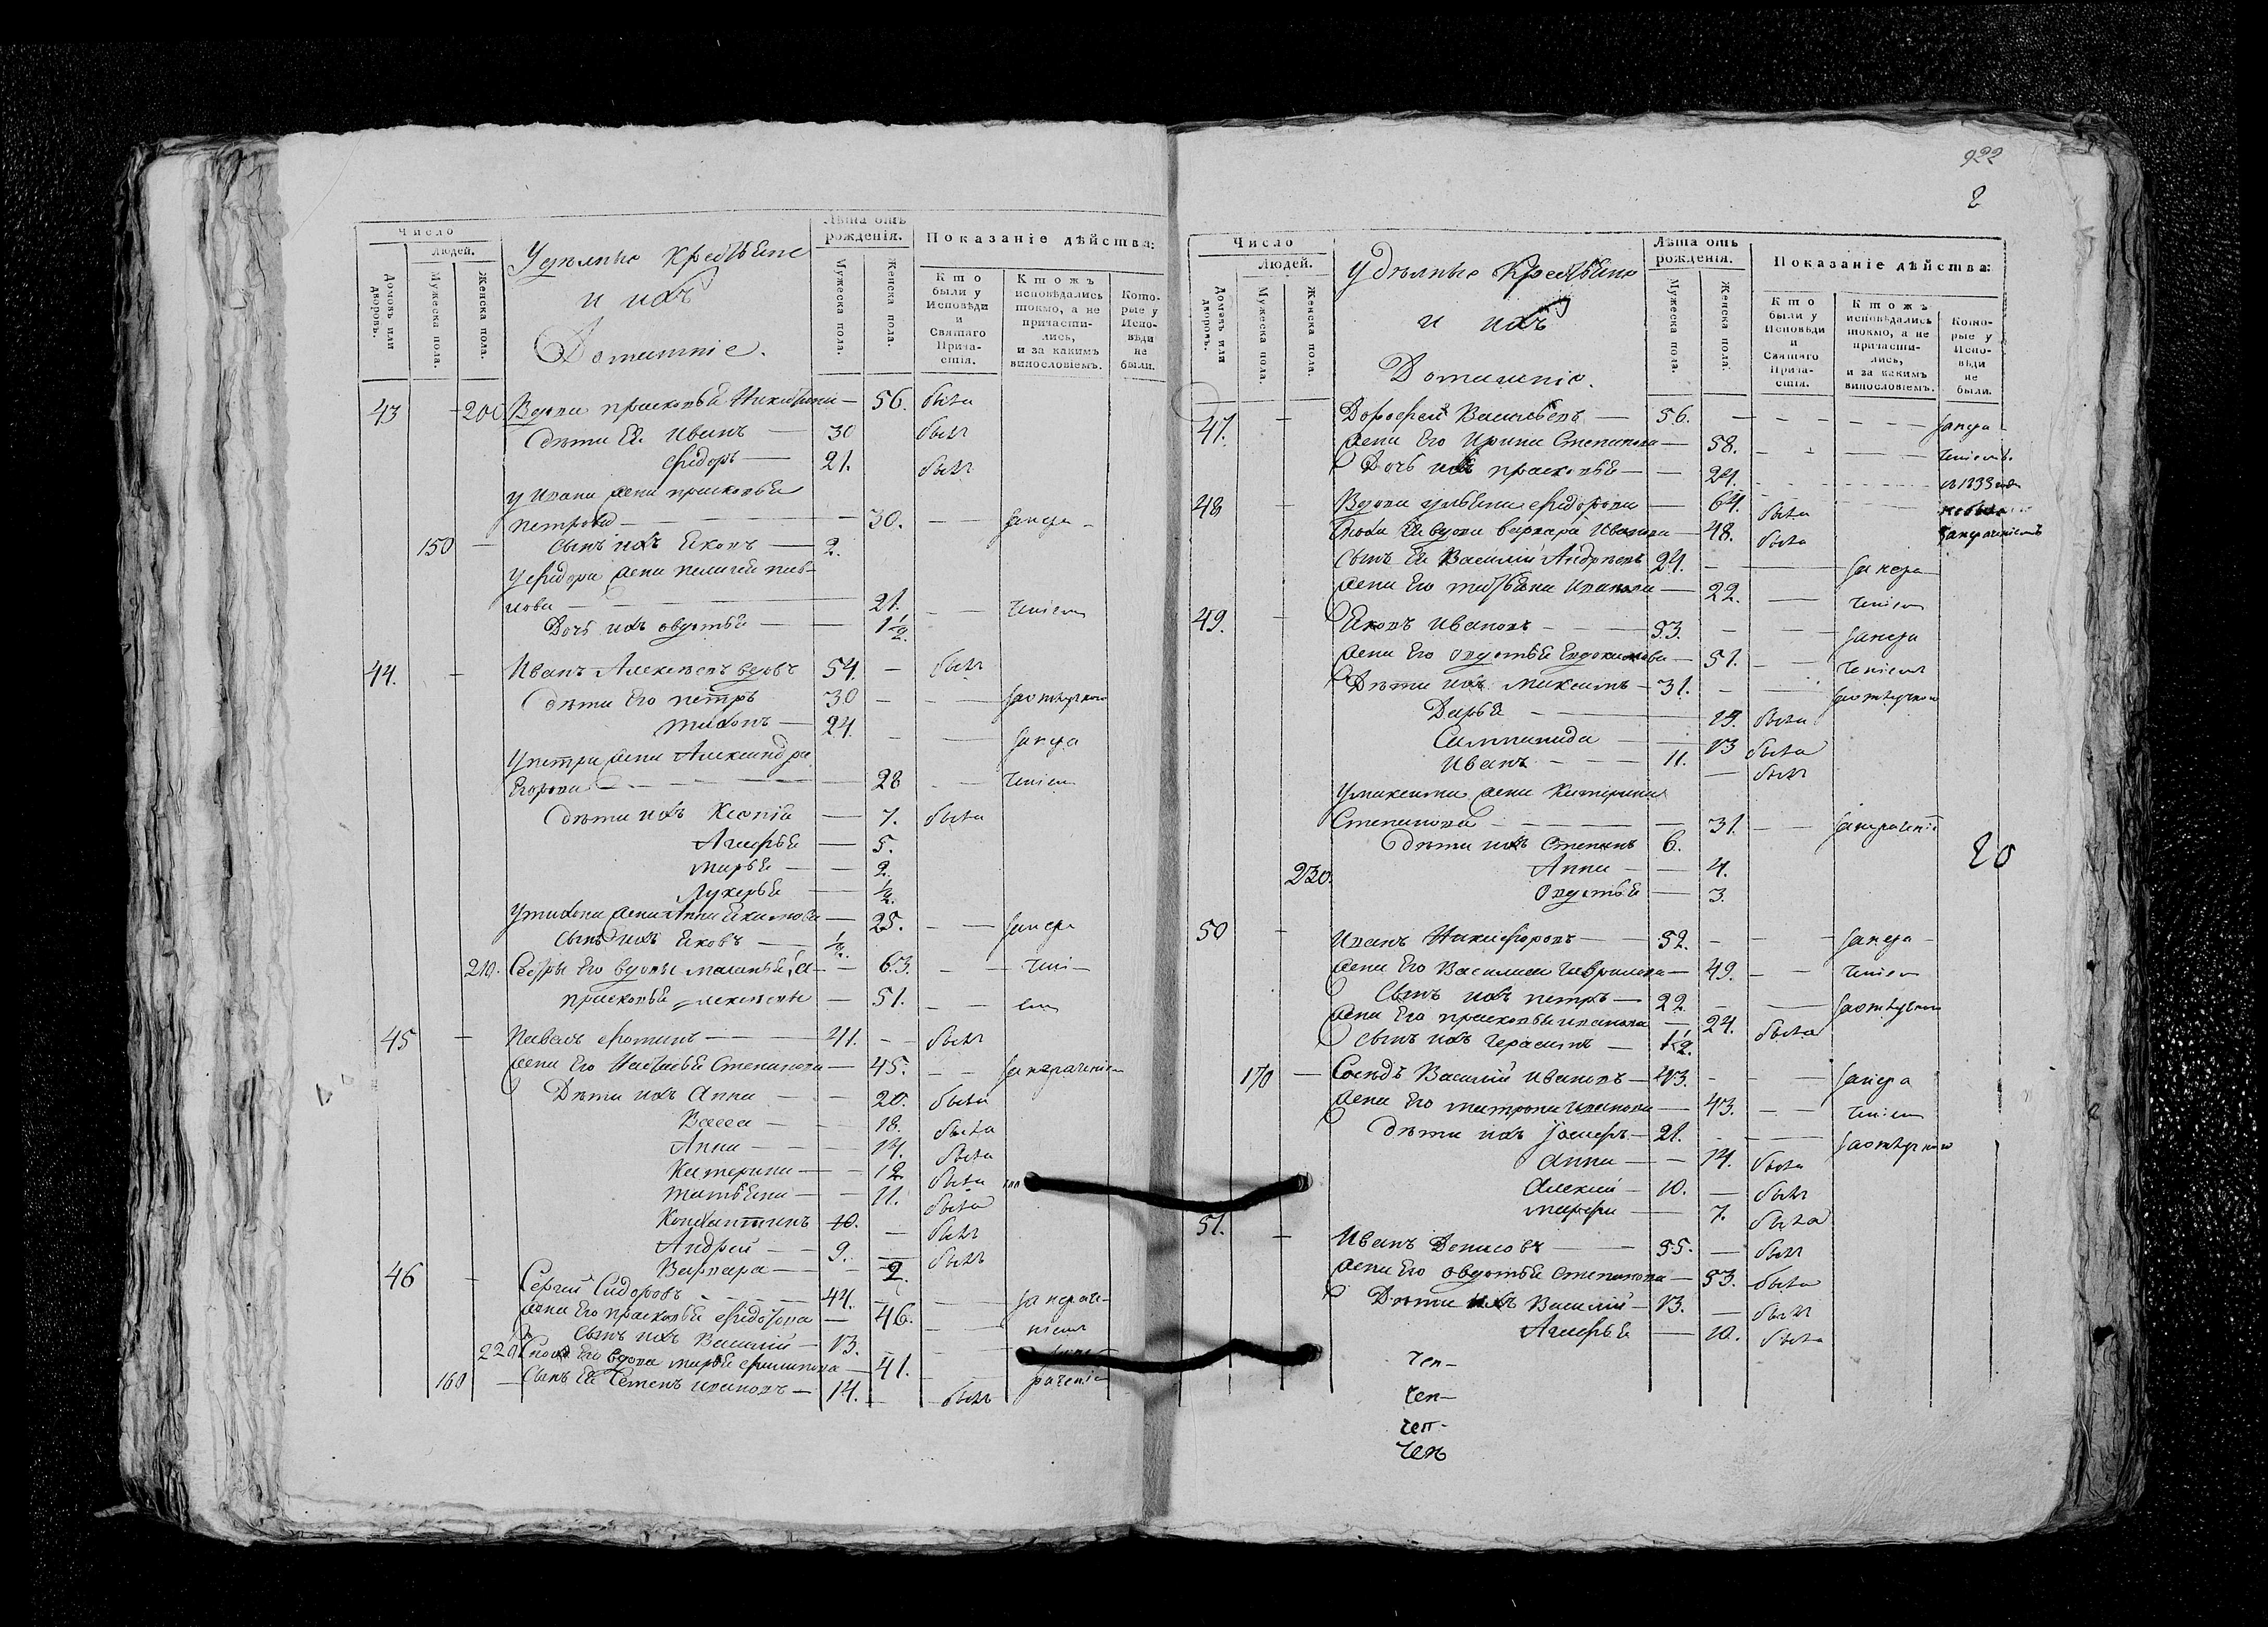 Число
Людей.
Домовъ или дворовъ.
Мужеска пола.
Женска пола.
Удѣльные Крестьяне
и ихъ
Домашніе.
Лѣта отъ рожденія.
Мужеска пола.
Женска пола.
Показаніе дѣйства:
Кто были у Исповѣди и Святаго Причастія.
Ктожъ исповѣдались токмо, а не причастились, и за какимъ винословіемъ.
Которые у Исповѣди не были.
43 200 Вдова прасковья Никитина — 56. была
дѣти Ея Иванъ — 30 былъ
Ѳедоръ — 21. былъ
у Ивана жена прасковья
петрова — 30. — занера-
150 — сынъ ихъ Яковъ — 2.
у Ѳедора жена пелагея
21. — ченіем
Дочь ихъ овдотья — 1 1/2.
44. — Иванъ Алексѣевъ вдовъ 54. — былъ
дѣти Его петръ 30 — заотлучкою
тихонъ — 24. — занера
у петра жена Александра
Егорова — 28 — ченіем
дѣти ихъ Ксенія — 7. была
Агафья — 5.
марья — 2.
Лукерья — 1/2.
у тихона жена Анна Екимова — 25. — занера
сынъ ихъ Яковъ — 1/2.
210. Сестры Его вдовы маланья, и — 63. — чені
прасковья Алексѣевы — 51. — ем
45 — Павелъ Фоминъ — 41. — былъ
жена Его Настасья Степанова — 45. — занераченіем
Дѣти ихъ Анна — 20. была
Васса — 18. была
Анна — 14. была
Катерина — 12 была
татьяна — 11. была
Константинъ 10. — былъ
Андрей — 9. — былъ
Варвара — 2.
46 — Сергей Сидоровъ — 44. — занераче-
жена Его прасковья Ѳедорова — 46. — ніем
сынъ ихъ Василій — 13.
220 Сноха Его вдова марья — 41. — раченіе
160 — Сынъ Ея Семенъ Ивановъ — 14. — былъ
922
2
Число
Людей.
Домовъ или дворовъ.
Мужеска пола.
Женска пола.
Удѣльные Крестьяне
и ихъ
Домашніе.
Лѣта отъ рожденія.
Мужеска пола.
Женска пола.
Показаніе дѣйства:
Кто были у Исповѣди и Святаго Причастія.
Ктожъ исповѣдались токмо, а не причастились, и за какимъ винословіемъ.
Которые у Исповѣди не были.
47. — Дорофей Васильевъ — 56. — занера
жена Его Ирина Степанова — 58. — ченіемъ
Дочь ихъ прасковья — 24. — 1833
48 — Вдова ульяна Ѳедорова — 64. была
Сноха Ея вдова варвара Иванова — 48. была занераченіемъ
сынъ Ея Василій Андреевъ 24. — занера
жена Его татьяна Иванова — 22. — ченіем
49. — Яковъ Ивановъ — 53. — занера
жена Его овдотья Евдокимова — 51. — ченіем
Дѣти ихъ максимъ — 31. — заотлучкою
Дарья — 19. была
Саломанида — 13 была
Иванъ — 11. — былъ
у максима жена Катерина
Степанова — 31. — занерачені
дѣти ихъ Степанъ 6.
230. Анна — 4.
овдотья — 3.
20
50 — Иванъ Никифоровъ — 52. — занера-
жена Его Василиса Гаврилова — 49. — ченіем
Сынъ ихъ петръ — 22 — заотлучкою
жена Его прасковья иванова — 24. была
сынъ ихъ Герасимъ — 1/2.
170 — Сосѣдъ Василій Ивановъ — 43. — занера
жена Его матрона иванова — 43. — ченіем
дѣти ихъ Іосифъ — 21. — заотлучкою
Анна — 14. была
Алексій — 10. — былъ
марфа — 7. была
51. — Иванъ Денисовъ — 55. — былъ
жена Его овдотья Степанова — 53. была
Дѣти ихъ Василій — 13. — былъ
Агафья — 10. была